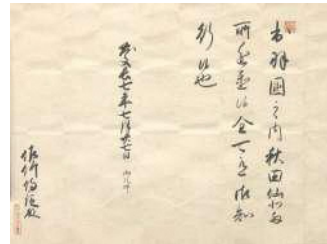 出羽國之内秋田仙北両
所進置候全可有御知
行候也
慶長七年七月廿七日
佐竹侍従殿